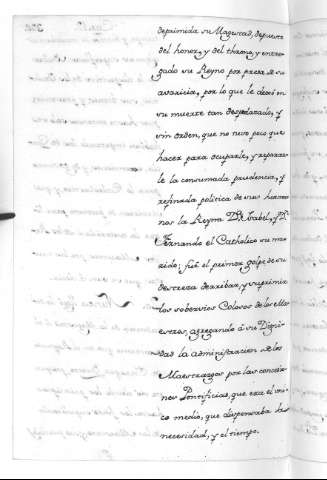 deprimida su Magestad, depuesta
del honor, y del throno, y entre-
gado su Reyno por presa de su
avaricia, por lo que le dexó in
su muerte tan despedazado, y
sin orden, que no tuvo poco que
hacer para ocuparle, y reparar-
le la consumada prudencia, y
refinada politica de sus herma-
nos la Reyna Dª Isabel, y Dn
Fernando el Catholico su ma-
rido; fué el primer golpe de su
destreza derribar, y suprimir
los sobervios Colosos de los Ma-
estres, agregando á su Digni-
dad la administracion de los
Maestrazgos por las concesio-
nes Pontificias, que era el uni-
co medio, que dispensaba la
necesidad, y el tiempo.